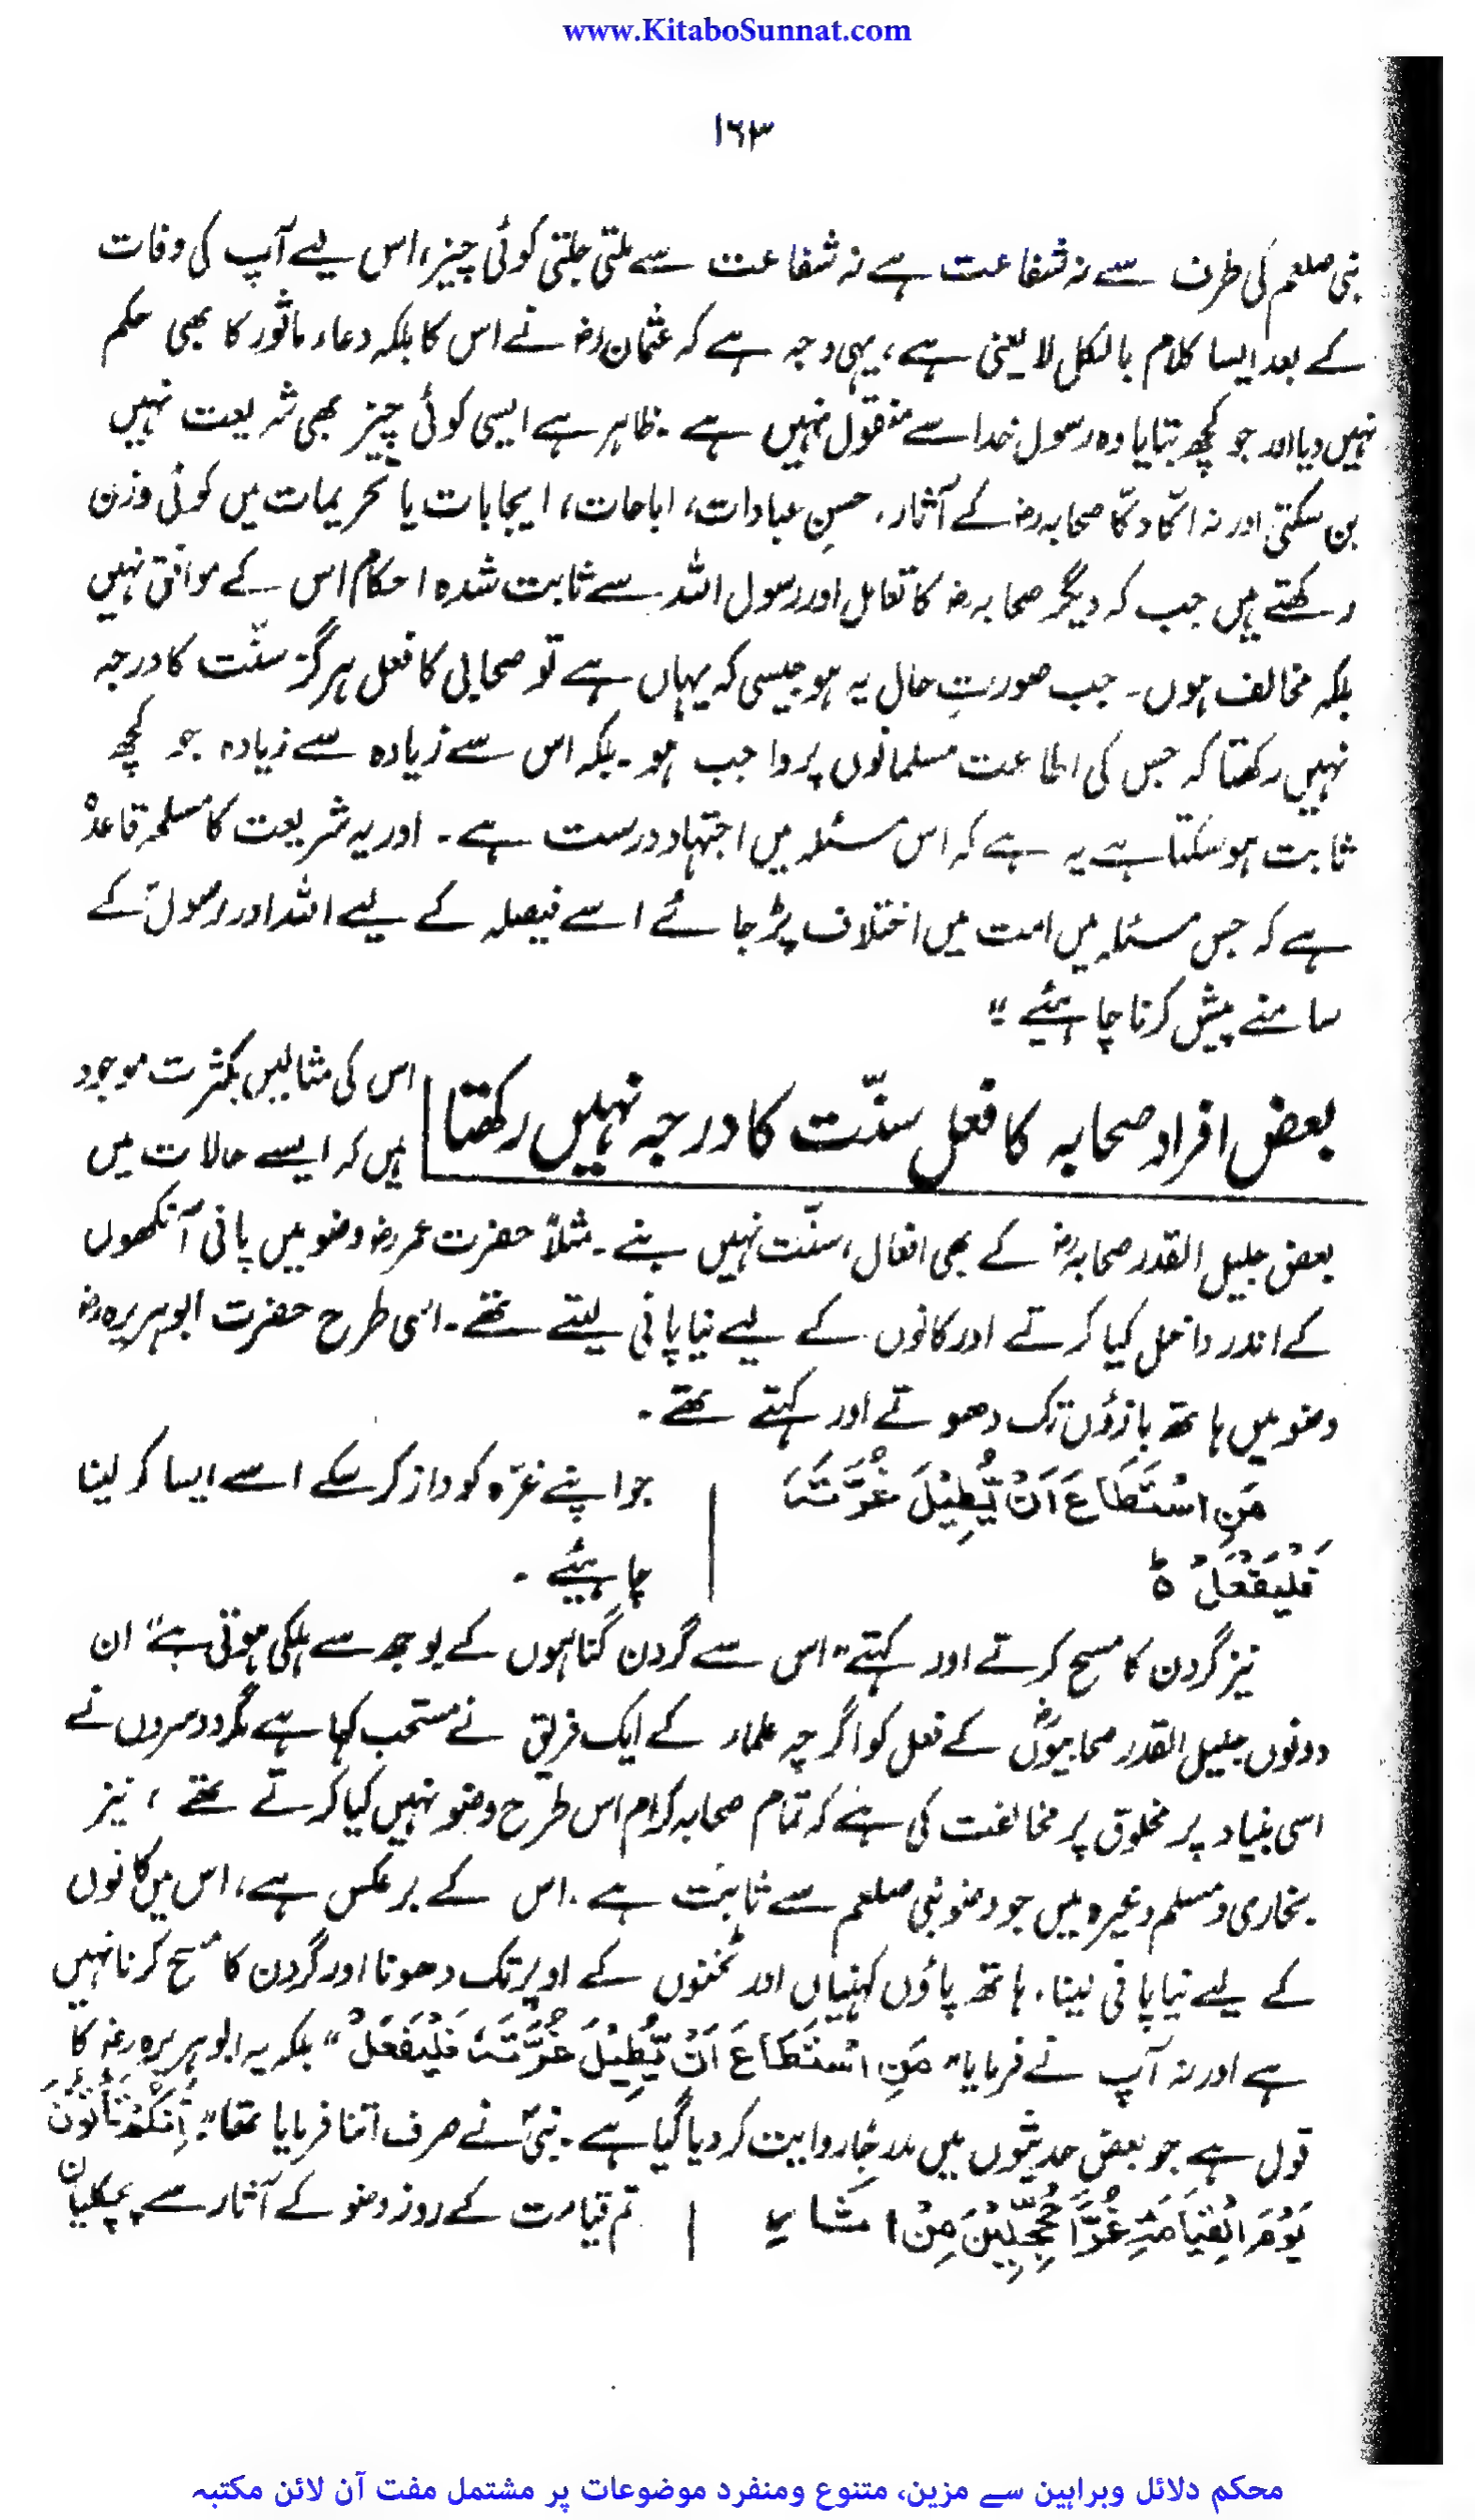 www.KitaboSunnat.com
۱۶۳
نبی صلعم کی طرف سے نہ شفاعت ہے نہ شفاعت سے ملتی جلتی کوئی چیز، اس لیے آپ کی وفات
کے بعد ایسا کلام بالکل لا یعنی ہے، یہی وجہ ہے کہ عثمان رضؓ نے اس کا بلکہ دعاء ماثور کا بھی حکم
نہیں دیا اور جو کچھ بتایا وہ رسول خدا سے منقول نہیں ہے۔ ظاہر ہے ایسی کوئی چیز بھی شریعت نہیں
بن سکتی اور نہ اکّا دکّا صحابہ رضؓ کے آثار، حسنِ عبادات، اباحات، ایجابات یا تحریمات میں کوئی وزن
رکھتے ہیں جب کہ دیگر صحابہ رضؓ کا تعامل اور رسول اللہ سے ثابت شدہ احکام اس کے موافق نہیں
بلکہ مخالف ہوں۔ جب صورتِ حال یہ ہو جیسی کہ یہاں ہے تو صحابی کا فعل ہرگز سنّت کا درجہ
نہیں رکھتا کہ جس کی اطاعت مسلمانوں پر واجب ہو۔ بلکہ اس سے زیادہ سے زیادہ جو کچھ
ثابت ہو سکتا ہے یہ ہے کہ اس مسئلہ میں اجتہاد درست ہے۔ اور یہ شریعت کا مسلمہ قاعدہ
ہے کہ جس مسئلہ میں امت میں اختلاف پڑ جائے اسے فیصلہ کے لیے اللہ اور رسولؐ کے
سامنے پیش کرنا چاہیئے "
بعض افراد صحابہ کا فعل سنّت کا درجہ نہیں رکھتا
اس کی مثالیں بکثرت موجود
ہیں کہ ایسے حالات میں
بعض جلیل القدر صحابہ رضؓ کے بھی افعال، سنّت نہیں بنے۔ مثلاً حضرت عمر رضؓ وضو میں پانی آنکھوں
کے اندر داخل کیا کرتے اور کانوں کے لیے نیا پانی لیتے تھے۔ اسی طرح حضرت ابوہریرہ رضؓ
وضو میں ہاتھ بازوؤں تک دھوتے اور کہتے تھے۔
مَنِ اسْتَطَاعَ اَنْ يُّطِيْلَ غُرَّتَهٗ
فَلْيَفْعَلْ ہ
جو اپنے غرّہ کو دراز کر سکے اسے ایسا کر لینا
چاہیئے۔
نیز گردن کا مسح کرتے اور کہتے "اس سے گردن گناہوں کے بوجھ سے ہلکی ہوتی ہے" ان
دونوں جلیل القدر صحابیوںؓ کے فعل کو اگرچہ علماء کے ایک فریق نے مستحب کہا ہے مگر دوسروں نے
اسی بنیاد پر مخلوق پر مخالفت کی ہے کہ تمام صحابہ کرام اس طرح وضو نہیں کیا کرتے تھے، نیز
بخاری و مسلم وغیرہ میں جو وضو نبی صلعم سے ثابت ہے۔ اس کے برعکس ہے، اس میں کانوں
کے لیے نیا پانی لینا، ہاتھ پاؤں کہنیاں اور ٹخنوں کے اوپر تک دھونا اور گردن کا مسح کرنا نہیں
ہے اور نہ آپ نے فرمایا "مَنِ اسْتَطَاعَ اَنْ يُّطِيْلَ غُرَّتَهٗ فَلْيَفْعَلْ" بلکہ یہ ابو ہریرہ رضؓ کا
قول ہے جو بعض حدیثوں میں مدرجًا روایت کر دیا گیا ہے۔ نبیؐ نے صرف اتنا فرمایا تھا "اِنَّكُمْ تَأْتُوْنَ
يَوْمَ الْقِيَامَةِ غُرًّا مُّحَجَّلِيْنَ مِنْ اٰثَارِ
تم قیامت کے روز وضو کے آثار سے پچکلیان
محکم دلائل وبراہین سے مزین، متنوع ومنفرد موضوعات پر مشتمل مفت آن لائن مکتبہ